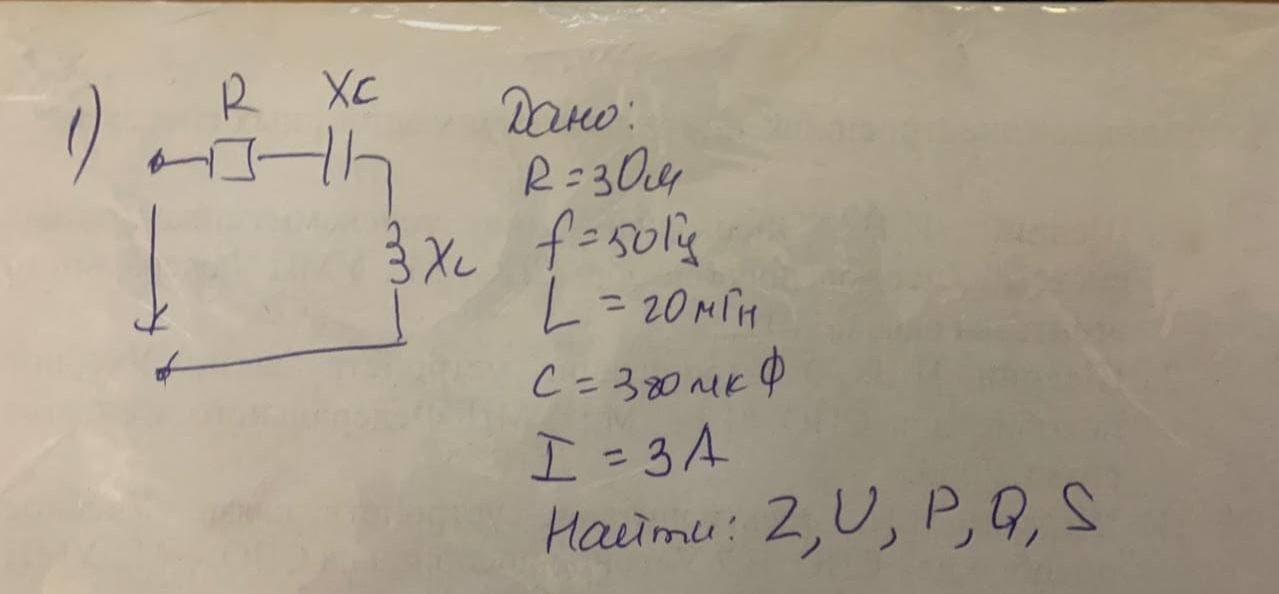 1) R XC
XL
Дано:
R = 3 Ом
f = 50 Гц
L = 20 мГн
C = 380 мкФ
I = 3 А
Найти: Z, U, P, Q, S